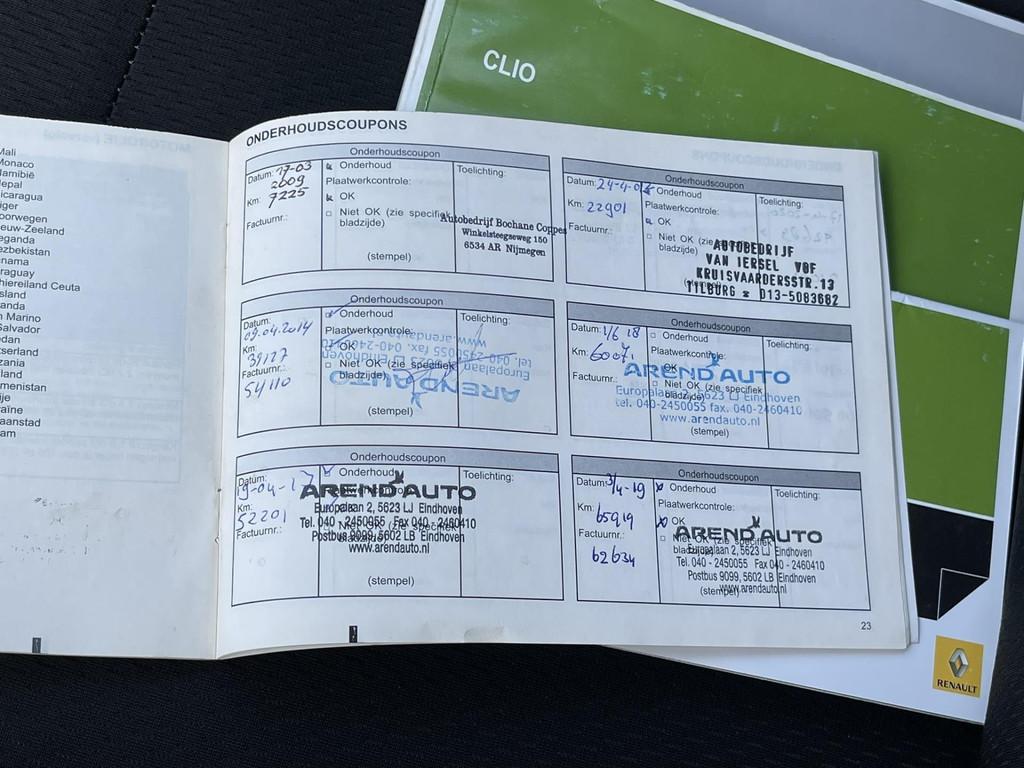 CLIO
Mali
Monaco
Namibië
Nepal
Nicaragua
Niger
Noorwegen
Nieuw-Zeeland
Oeganda
Oezbekistan
Panama
Paraguay
Schiereiland Ceuta
Rusland
San Marino
Salvador
Zwitserland
Tanzania
Turkmenistan
ONDERHOUDSCOUPONS
Onderhoudscoupon
Datum: 17-03
2009
Km: 7225
Factuurnr.:
Onderhoud
Plaatwerkcontrole:
OK
Niet OK (zie specifiek
bladzijde)
(stempel)
Toelichting:
Autobedrijf Bochane Coppes
Winkelsteegseweg 150
6534 AR Nijmegen
Onderhoudscoupon
Datum: 24-4-
Km: 22901
Factuurnr.:
Onderhoud
Plaatwerkcontrole:
OK
Niet OK (zie
bladzijde)
Toelichting:
AUTOBEDRIJF
VAN IERSEL VOF
KRUISVAARDERSSTR.13
TILBURG 013-5083682
Onderhoudscoupon
Datum:
09.04.2014
Km:
39127
Factuurnr.:
54110
Onderhoud
Plaatwerkcontrole:
OK
Niet OK (zie specifiek
bladzijde)
(stempel)
Toelichting:
AREND AUTO
Europalaan 5623 LJ Eindhoven
tel. 040-2450055 fax. 040-2460410
www.arendauto.nl
Onderhoudscoupon
Datum: 1/6 18
Km: 6007
Factuurnr.:
Onderhoud
Plaatwerkcontrole:
OK
Niet OK (zie specifiek
bladzijde)
(stempel)
Toelichting:
AREND AUTO
Europalaan 5623 LJ Eindhoven
tel. 040-2450055 fax. 040-2460410
www.arendauto.nl
Onderhoudscoupon
Datum:
19-04-17
Km:
52201
Factuurnr.:
Onderhoud
(stempel)
Toelichting:
AREND AUTO
Europalaan 2, 5623 LJ Eindhoven
Tel. 040 - 2450055 Fax 040 - 2460410
Postbus 9099, 5602 LB Eindhoven
www.arendauto.nl
Onderhoudscoupon
Datum: 3/4-19
Km: 65919
Factuurnr.:
62634
Onderhoud
Plaatwerkcontrole:
OK
Niet OK (zie specifiek
bladzijde)
(stempel)
Toelichting:
AREND AUTO
Europalaan 2, 5623 LJ Eindhoven
Tel. 040 - 2450055 Fax 040 - 2460410
Postbus 9099, 5602 LB Eindhoven
www.arendauto.nl
23
RENAULT